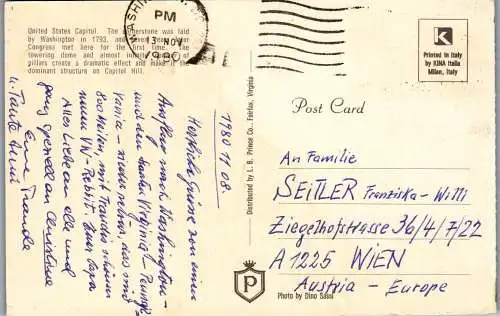 United States Capitol. The cornerstone was laid
by Washington in 1793, and seven years later
Congress met here for the first time. The
towering dome and almost infinite
pillars create a dramatic effect and make it the
dominant structure on Capitol Hill.
WASHIN
PM
13 NOV
1980
K
Printed in Italy
by KINA Italia
Milan, Italy
Post Card
Distributed by L. B. Prince Co., Fairfax, Virginia
1980 11 08
Herzliche Grüsse von einem
Ausflug nach Washington -
und den Staaten Virginia
mit
800 Meilen mit
neuen VW-Rabbit. Euer Papa
Alles Liebe an alle und
ganz speziell an Christiane
Eure
u. Tante
An Familie
SEITLER Franziska - Willi
Ziegelhofstrasse 36/4/7/22
A 1225 WIEN
Austria - Europe
P
Photo by Dino Sassi